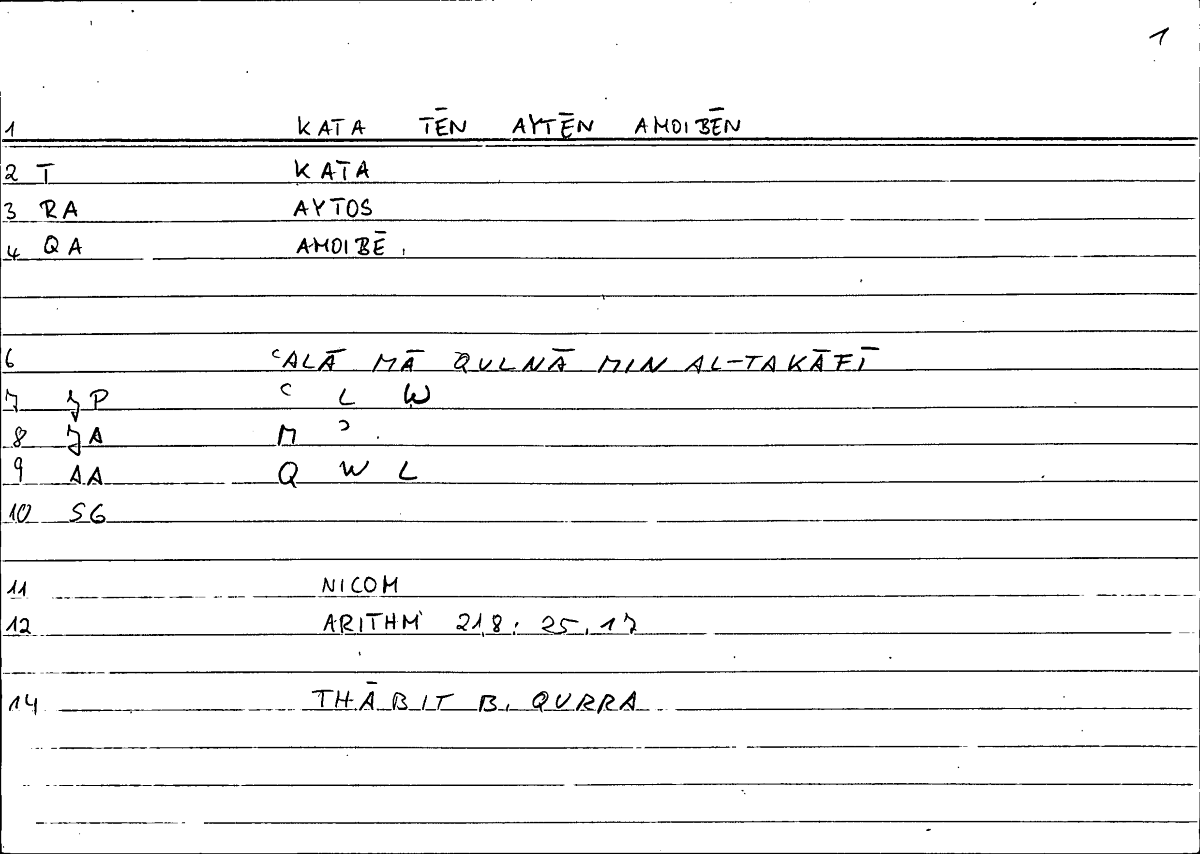 1
1 KATA TĒN AYTĒN AMOIBĒN
2 T KATA
3 RA AYTOS
4 QA AMOIBĒ
6 ʿALĀ MĀ QULNĀ MIN AL-TAKĀFĪ
7 ʿ L W
8 M ʾ
9 AA Q W L
10 SG
11 NICOM
12 ARITHM 21,8 : 25,17
14 THĀBIT B. QURRA